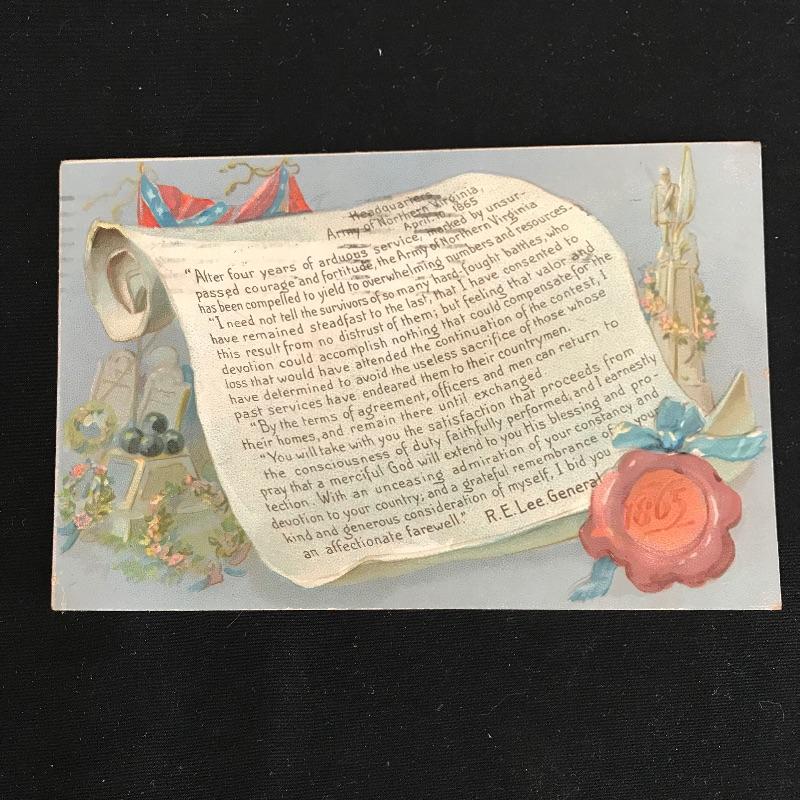 Headquarters,
Army of Northern Virginia,
April, 10, 1865
"After four years of arduous service, marked by unsur-
passed courage and fortitude, the Army of Northern Virginia
has been compelled to yield to overwhelming numbers and resources.
"I need not tell the survivors of so many hard fought battles, who
have remained steadfast to the last, that I have consented to
this result from no distrust of them; but feeling that valor and
devotion could accomplish nothing that could compensate for the
loss that would have attended the continuation of the contest, I
have determined to avoid the useless sacrifice of those whose
past services have endeared them to their countrymen.
"By the terms of agreement, officers and men can return to
their homes, and remain there until exchanged.
"You will take with you the satisfaction that proceeds from
the consciousness of duty faithfully performed, and I earnestly
pray that a merciful God will extend to you His blessing and pro-
tection. With an unceasing admiration of your constancy and
devotion to your country, and a grateful remembrance of your
kind and generous consideration of myself, I bid you
an affectionate farewell."
R.E. Lee, General
1865